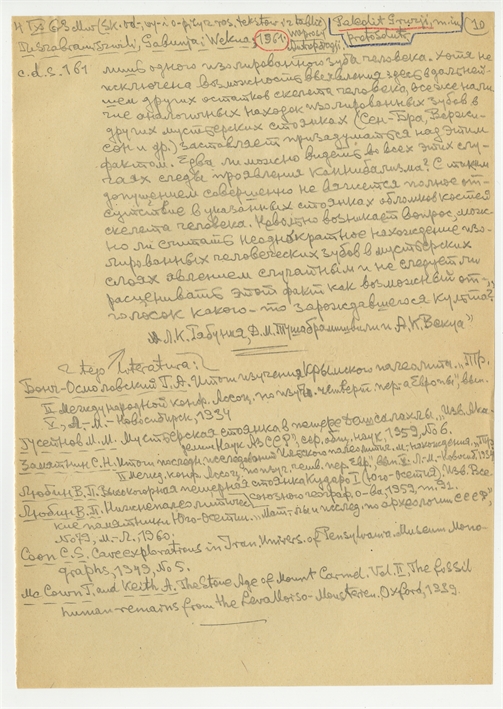 Paleolit Gruzji, m.in.
Protosztuka
10
Tuszabramiszwili, Gabunja i Wekua, 1961.
c.d.s. 161
лишь одного изолированного зуба человека. Хотя не
исключена возможность выявления здесь в дальней-
шем других остатков скелета человека, все же нали-
чие аналогичных находок изолированных зубов в
других мустьерских стоянках (Сен-Бра,
сон и др.) заставляет призадуматься над этим
фактом. Едва ли можно видеть во всех этих слу-
чаях следы проявления каннибализма? С таким
допущением совершенно не вяжется полное от-
сутствие в указанных стоянках обломков костей
скелета человека. Невольно возникает вопрос, мож-
но ли считать неоднократное нахождение изо-
лированных человеческих зубов в мустьерских
слоях явлением случайным и не следует ли
расценивать этот факт как возможный от-
голосок какого-то зарождавшегося культа?"
Л.К. Габуния, Д.М. Тушабрамишвили и А.К. Векуа"
Literatura:
Бонч-Осмоловский Г.А. Итоги изучения Крымского палеолита. "Тр.
II Международной конф. Ассоц. по изуч. четверт. пер-а Европы", вып.
V, Л-М.-Новосибирск, 1934
Гусейнов М.М. Мустьерская стоянка в пещере Дашсалахлы. "Изв. Ака-
демии Наук АзССР", сер. общ. наук, 1959, No 6.
Замятнин С.Н. Итоги последн. исследований Ильского палеолитич. м-нахождения. "Тр.
II Межд. конф. Ассоц. по изуч. четв. пер. Евр.", вып. V, Л-М.-Новосиб. 1934
Любин В.П. Высокогорная пещерная стоянка Кударо I (Юго-Осетия). Изв. Все-
союзного географ. о-ва, 1959, т. 91.
Любин В.П. Нижнепалеолитичес-
кие памятники Юго-Осетии. "Мат-лы и исслед. по археологии СССР",
No 79, М-Л. 1960.
Coon C.S. Cave explorations in Iran, Univers. of Pensylvania. Museum Mono-
graphs, 1949, No 5.
Mc Cown T. and Keith A. The Stone Age of Mount Carmel. Vol. II, The fissil
human remains from the Levalloiso-Mousterien. Oxford, 1939.